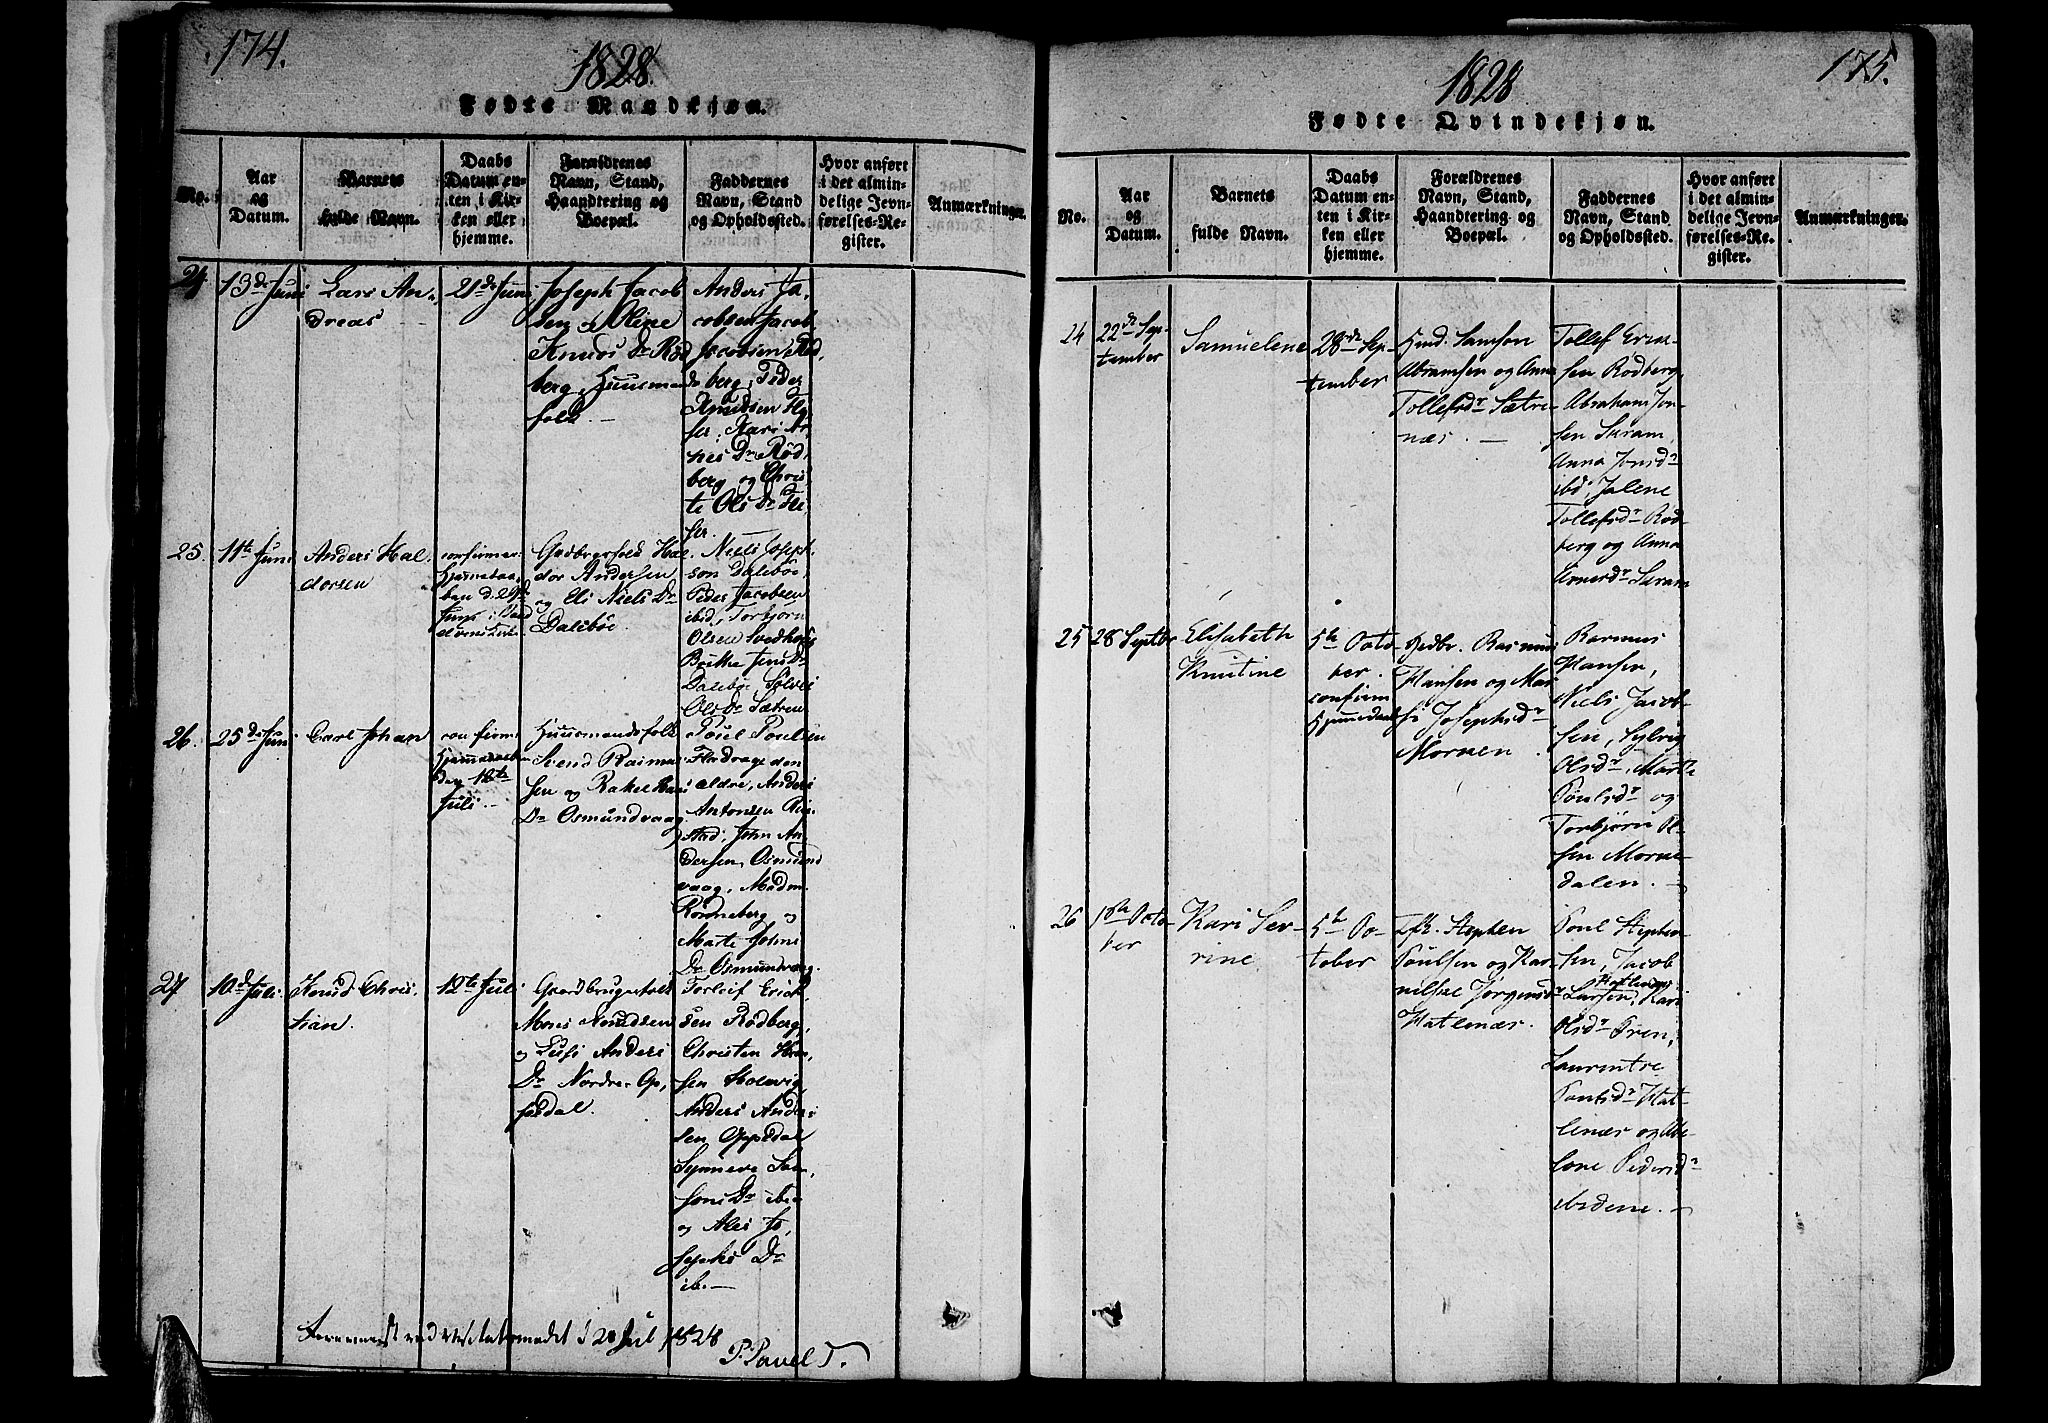 174.
1828
Fødte Mandkjøn.
No.
Aar
og
Datum.
Barnets
fulde Navn.
Daabs
Datum en-
ten i Kir-
ken eller
hjemme.
Forældrenes
Navn, Stand,
Haandtering og
Boepæl.
Faddernes
Navn, Stand
og Opholdssted.
Hvor anført
i det almin-
delige Jevn-
førelses-Re-
gister.
Anmærkninger.
24.
13de Juni
Lars An-
dreas
21de Juni
Joseph Jacob
sen & Oline
Knuds Dr Rød
berg, Huusmands
folk.
Anders Ja,
cobsen, Jacob
Jacobsen Rød,
berg, Peder
Knudsen
Kari Ar
nes Dr Rød
berg og Chris
te Ols Dr
25.
11te Juni
Anders Hal
dorsen
confirmer.
Hjemmedaa,
ben d. 29de
Juni
Gadbrugerfolk Hal
dor Andersen
og Eli Niels Dr
Dalsbøe.
Niels Joseph
son Dalsbøe,
Peder Jacobsen
ibid, Torbjørn
Olsen
Brithe Jens Dr
Dalsbøe, Sølvei
Ols Dr Sætren
26.
25de Juni
Carl Johan
confirm
Hjemmedaaben
den 12te
Juli.—
Huusmandsfolk
Svend Rasmus
sen og Rakel Hans
Dr Osmundvaag.
Poul Poulsen
Flordvage den
ældre, Anders
Antonsen
stad, John An
dersen, Osmund
vaag, Madm.
Rønneberg og
Marte Johns
Dr Osmundvaag.
27
10de Juli.
Knud Chris
tian.
12te Juli
Gaardbrugerfolk
Mons Knudsen
og Lusi Anders
Dr Nordre Op,
sdal.
Torleif Erick
sen Rødberg,
Christen Han,
sen Holmvig,
Anders Anders
sen Oppsdal
Synneve
sons Dr ibid
og Ales Jo,
sephs Dr
ib.—
1828
P. Pavels.
175.
1828
Fødte Qvindekjøn.
No.
Aar
og
Datum.
Barnets
fulde Navn.
Daabs
Datum en-
ten i Kir-
ken eller
hjemme.
Forældrenes
Navn, Stand,
Haandtering og
Boepæl.
Faddernes
Navn, Stand
og Opholdssted.
Hvor anført
i det almin-
delige Jevn-
førelses-Re-
gister.
Anmærkninger.
24
22de Sep-
tember
Samuelene
28de Sep-
tember
Hmd. Samson
Abramsen og Anna
Tollefsdr Sætre-
næs. —
Tollef Erik-
sen Rødberg,
Abraham Jon-
sen Suram,
Anna Jonsdr
ibd, Jolene
Tollefsdr Rød-
berg og Anna
Arnesdr Suram
25
28 Septbr
Elisabeth
Knutine
5te Octo-
ber.
confirm
Hjemmedaab
Gedbr. Rasmus
Hansen og Mar
Josephsdr
Morven.
Rasmus
Hansen,
Niels Jacob-
sen, Sylvig
Olsdr, Marthe
Poulsdr og
Torbjørn Ol-
sen Morve-
dalen. —
26
1ste Octo-
ber
Kari Se-
rine.
5te Oc-
tober
Stephen
Poulsen og Kar-
nilse Jørgensdr
Hatlenæs.
Poul Stephen-
sen, Jacob
Larsen, Hatlenæs
Kari
Olsdr Oren,
Laurentse
Poulsdr Hat-
lenæs og
Pedersdr
ibidene. —